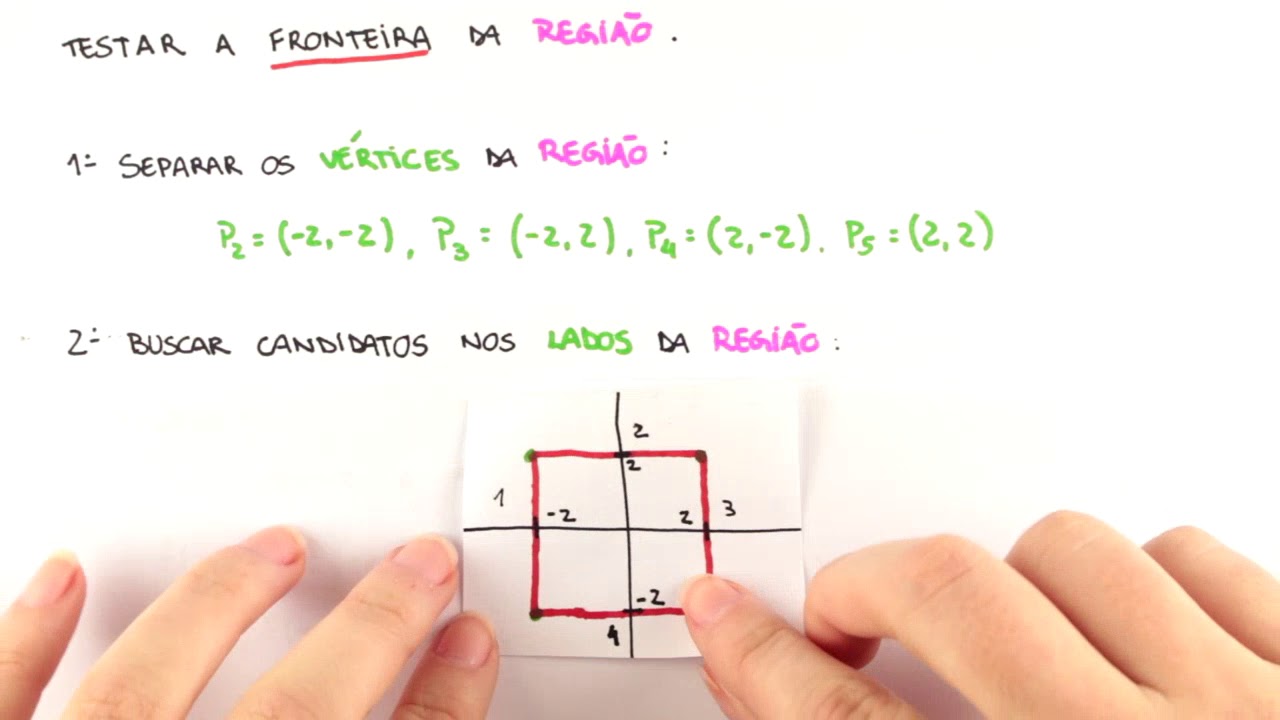 TESTAR A FRONTEIRA DA REGIÃO.
1- SEPARAR OS VÉRTICES DA REGIÃO:
P2 = (-2,-2), P3 = (-2,2), P4 = (2,-2). P5 = (2,2)
2- BUSCAR CANDIDATOS NOS LADOS DA REGIÃO:
2
2
1 -2 2 3
-2
4